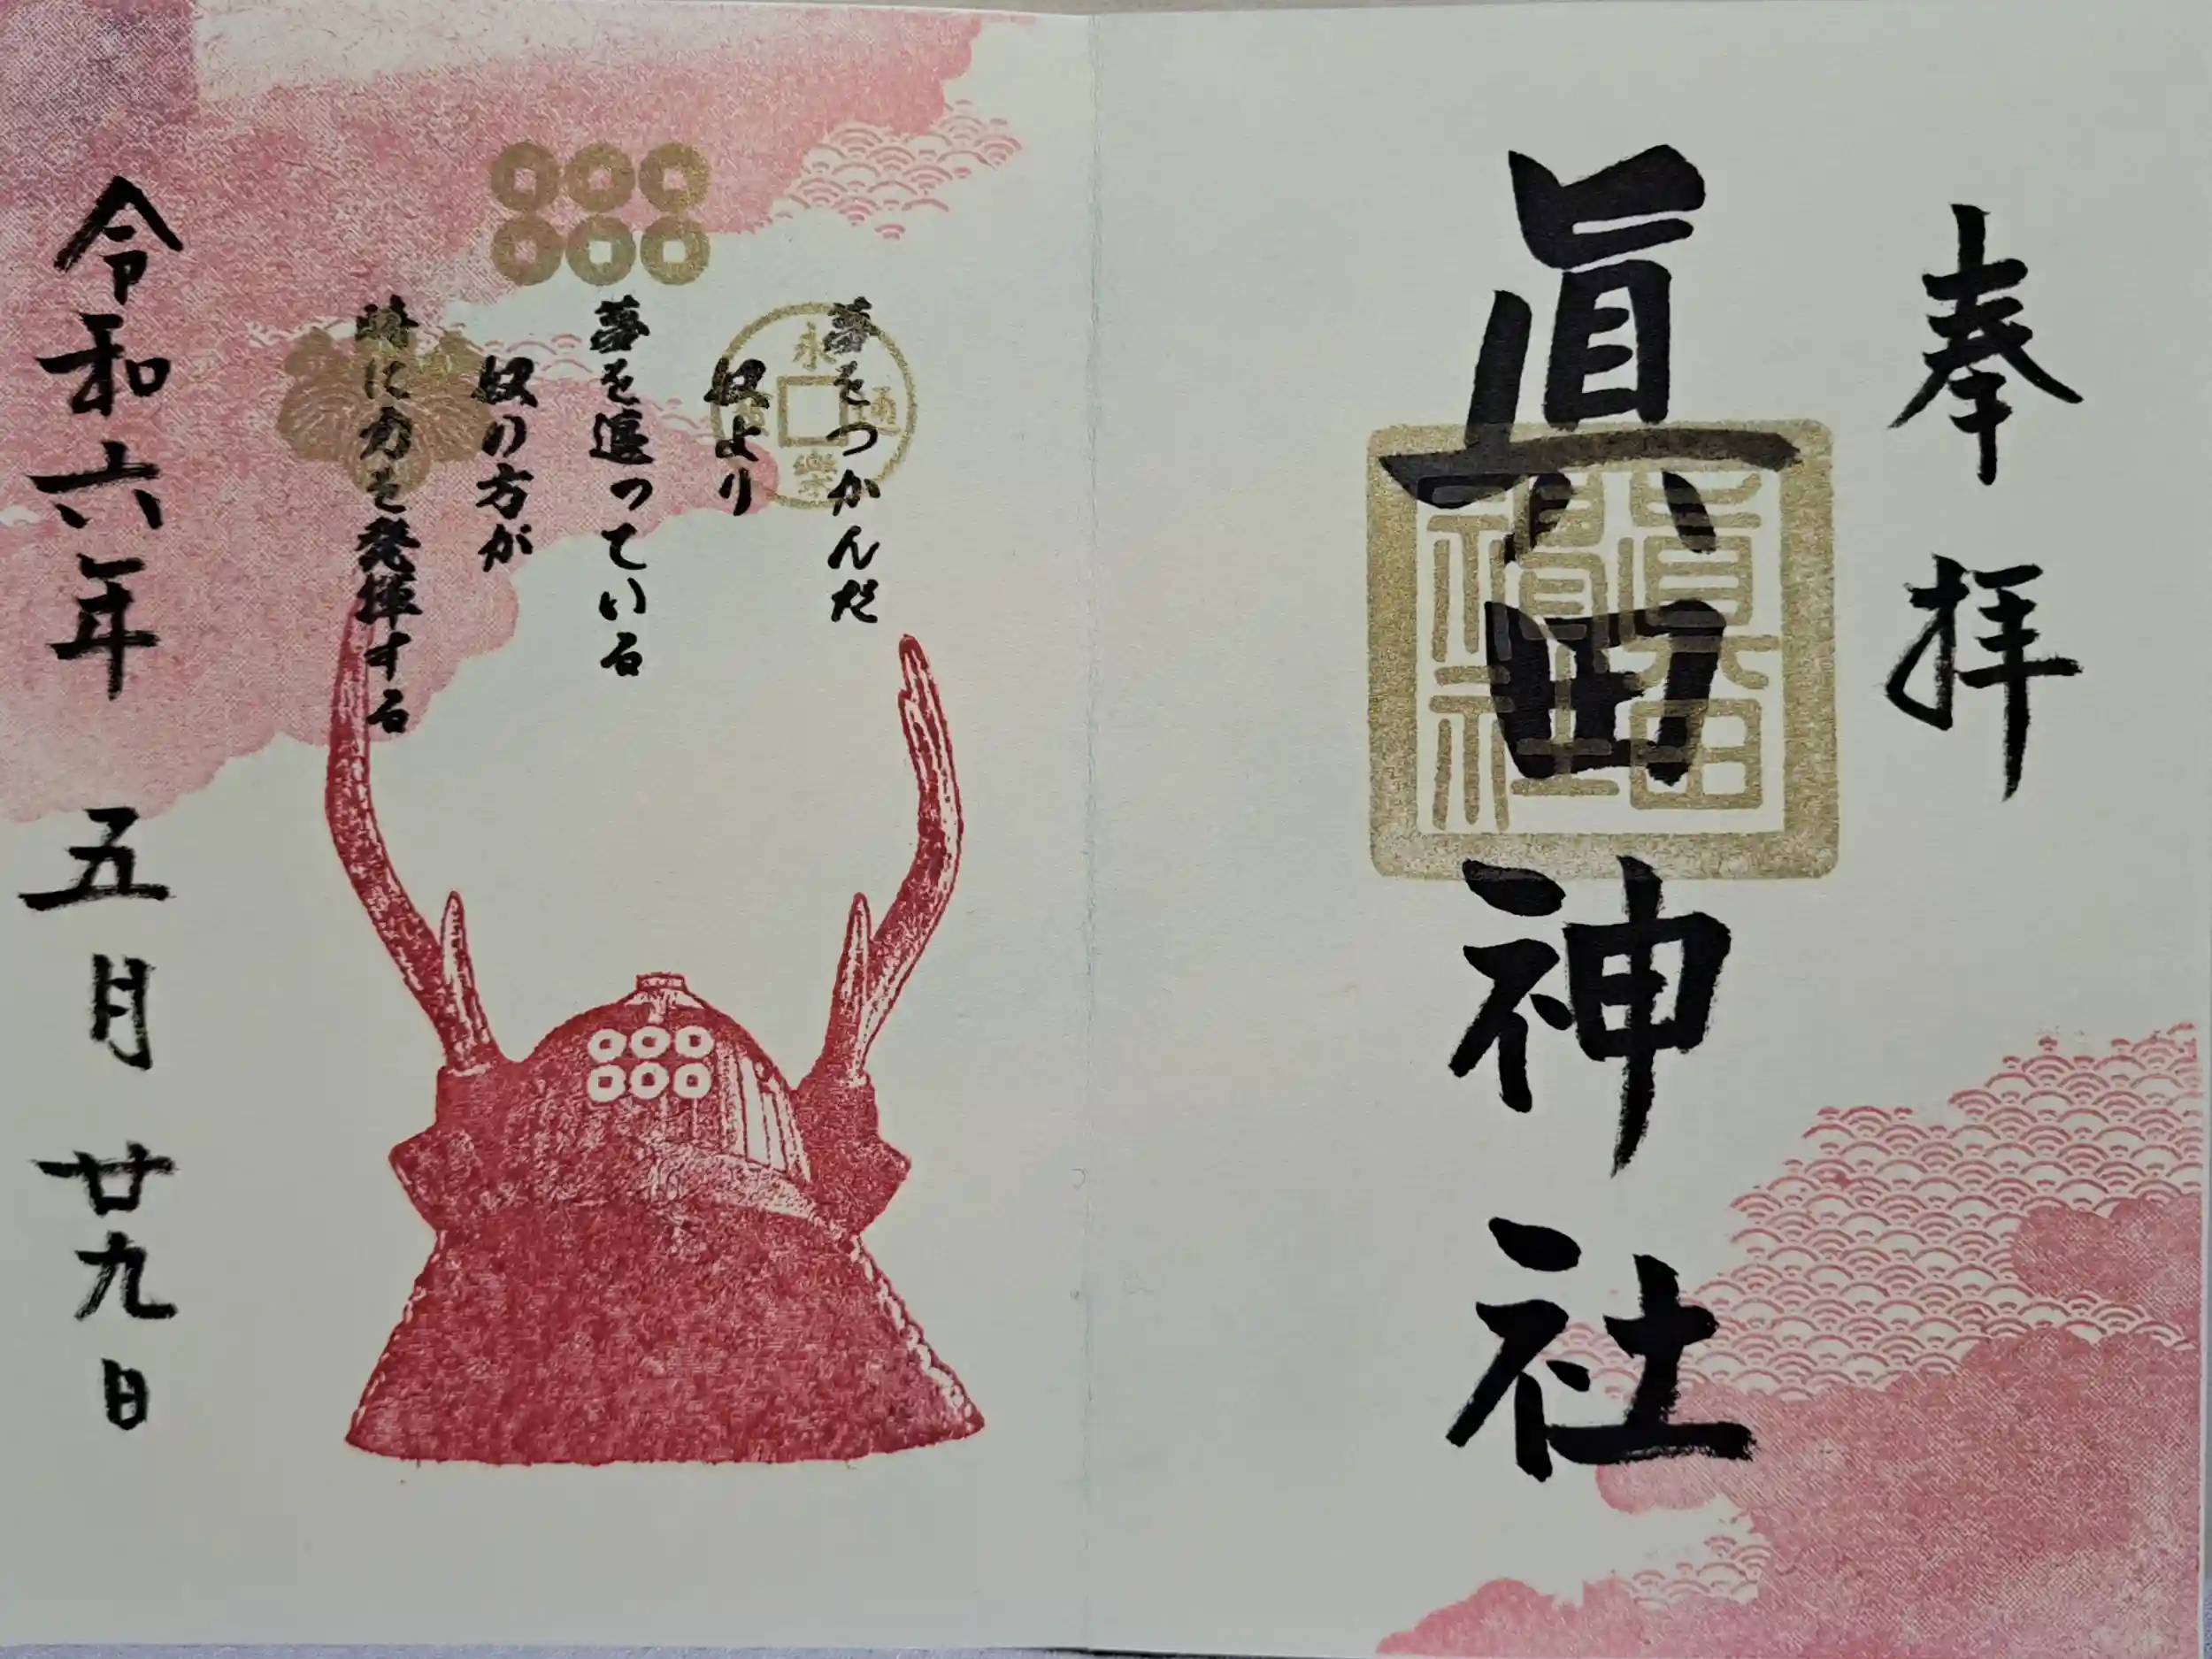 奉拝
眞田神社
眞田
神社
夢をつかんだ
奴より
夢を追っている
奴の方が
時に力を発揮する
永樂通
令和六年 五月廿九日